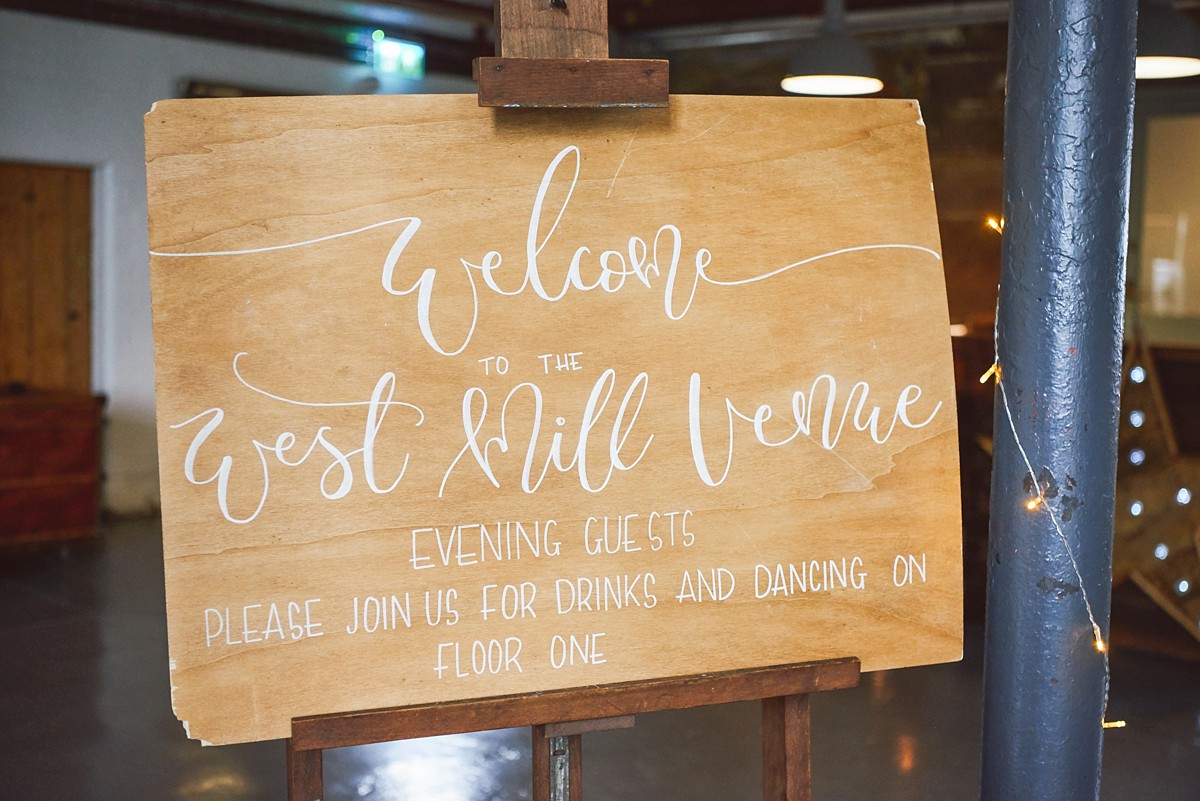 Welcome
TO THE
West Mill Venue
EVENING GUESTS
PLEASE JOIN US FOR DRINKS AND DANCING ON
FLOOR ONE